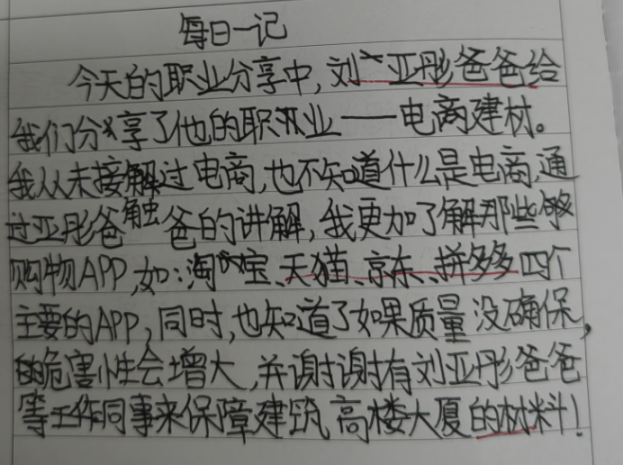 每日一记
今天的职业分享中,刘亚彤爸爸给
我们分享了他的职业——电商建材。
我从未接触过电商,也不知道什么是电商,通
过亚彤爸爸的讲解,我更加了解那些够
购物APP,如:淘宝、天猫、京东、拼多多四个
主要的APP,同时,也知道了如果质量没确保,
的危害性会增大,并谢谢有刘亚彤爸爸
等工作同事来保障建筑高楼大厦的材料!